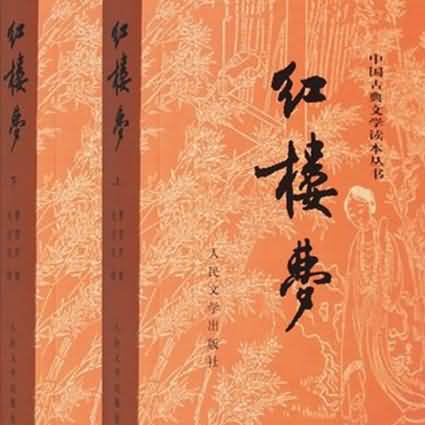 中国古典文学读本丛书
红楼梦
人民文学出版社
红楼梦
上
红楼梦
下
人民文学出版社